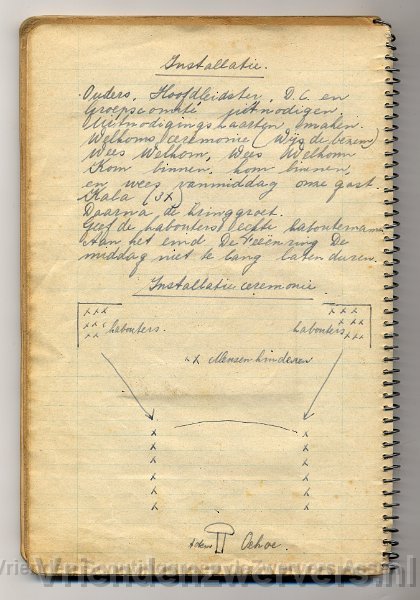 Installatie.
Ouders, Hoofdleidster, D.C. en
Groepscomité uitnodigen.
Uitnodigingskaarten maken.
Welkomsceremonie (Wijs de beren)
Wees Welkom, Wees Welkom
Kom binnen, kom binnen,
en wees vanmiddag onze gast.
Kala (3X
Daarna de kringgroet.
Geef de kabouters echte kabouternamen
Aan het eind De Feeënring De
middag niet te lang laten duren.
Installatie ceremonie.
kabouters.
kabouters
Mensenkinderen
Oehoe.
Vriendenzwervers.nl